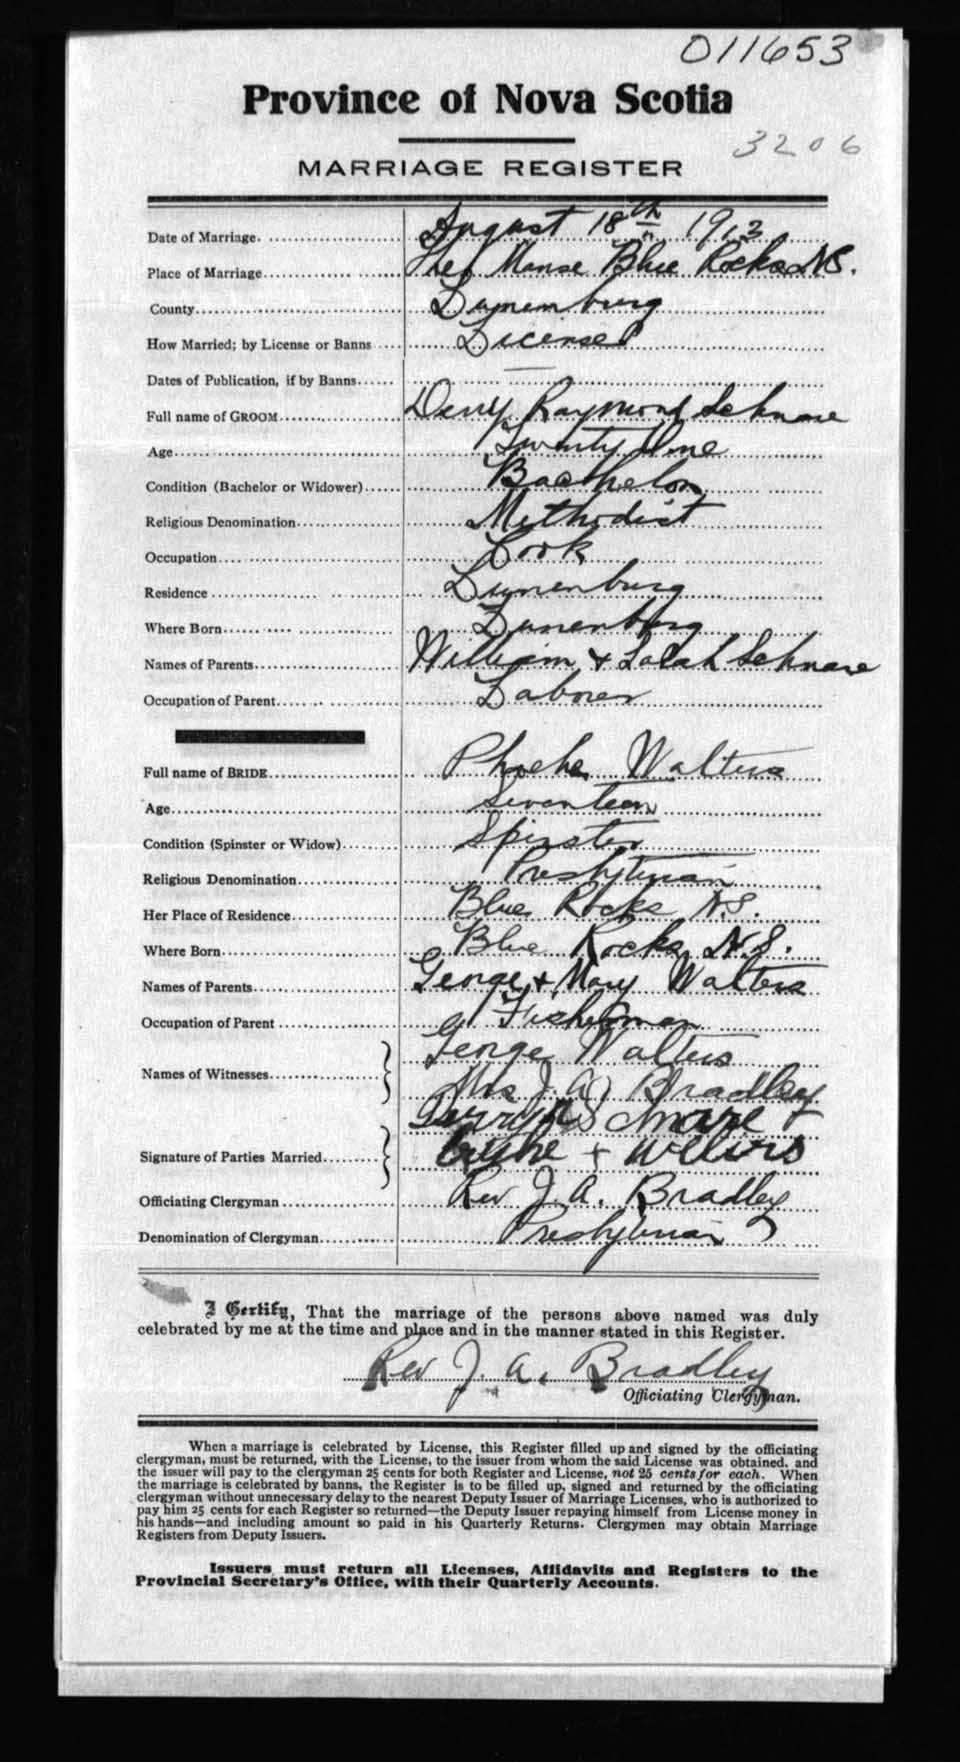 011653
Province of Nova Scotia
3206
MARRIAGE REGISTER
Date of Marriage. August 18th 1913
Place of Marriage The Manse Blue Rocks N.S.
County Lunenburg
How Married; by License or Banns License
Dates of Publication, if by Banns —
Full name of GROOM Raymond Schnare
Age Twenty One
Condition (Bachelor or Widower) Bachelor
Religious Denomination Methodist
Occupation Cook
Residence Lunenburg
Where Born Lunenburg
Names of Parents William & Sarah Schnare
Occupation of Parent Laborer
Full name of BRIDE Phoebe Walters
Age Seventeen
Condition (Spinster or Widow) Spinster
Religious Denomination Presbyterian
Her Place of Residence Blue Rocks N.S.
Where Born Blue Rocks N.S.
Names of Parents George & Mary Walters
Occupation of Parent Fisherman
Names of Witnesses George Walters
Mrs J. A. Bradley
Schnare
Signature of Parties Married
Officiating Clergyman Rev J. A. Bradley
Denomination of Clergyman Presbyterian
I Certify, That the marriage of the persons above named was duly
celebrated by me at the time and place and in the manner stated in this Register.
Rev J. A. Bradley
Officiating Clergyman.
When a marriage is celebrated by License, this Register filled up and signed by the officiating
clergyman, must be returned, with the License, to the issuer from whom the said License was obtained. and
the issuer will pay to the clergyman 25 cents for both Register and License, not 25 cents for each. When
the marriage is celebrated by banns, the Register is to be filled up, signed and returned by the officiating
clergyman without unnecessary delay to the nearest Deputy Issuer of Marriage Licenses, who is authorized to
pay him 25 cents for each Register so returned—the Deputy Issuer repaying himself from License money in
his hands—and including amount so paid in his Quarterly Returns. Clergymen may obtain Marriage
Registers from Deputy Issuers.
Issuers must return all Licenses, Affidavits and Registers to the
Provincial Secretary's Office, with their Quarterly Accounts.